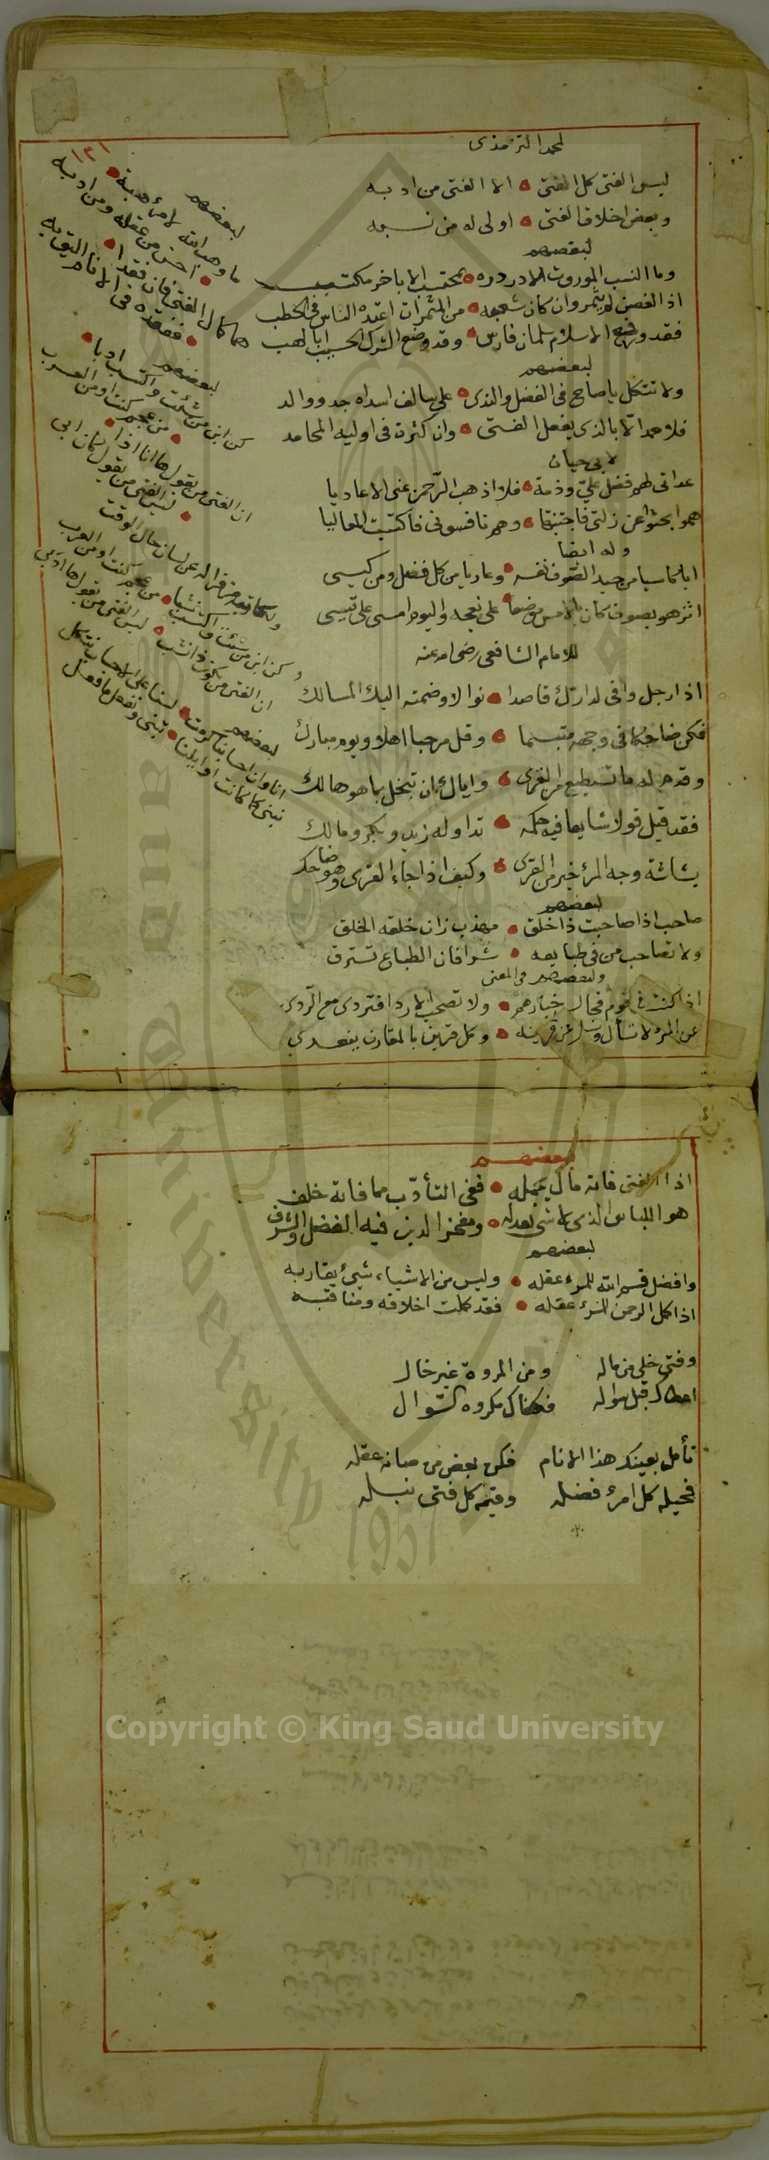 لمحمد الترمذي
ليس الفتى كل الفتى • الا الفتى من ادبه
وبعض اخلاق الفتى • اولى له من نسبه
لبعضهم
وما النسب الموروث لا در دره • بمحتسب الا باخر مكتسب
اذا الغصن لم يثمر وان كان شعبه • من المثمرات اعتده الناس في الحطب
فقد رفع الاسلام سلمان فارس • وقد وضع الشرك الحسيب ابا لهب
لبعضهم
ولا تتكل يا صاح في الفضل والندى • على سالف اسداه جد ووالد
فلا حمد الا بالذي يفعل الفتى • وان كثرت في اوليه المحامد
لابي حيان
عداتي لهم فضل علي وذمة • فلا اذهب الرحمن عني الاعاديا
هموا بحثوا عن زلتي فاجتنبتها • وهم نافسوني فاكتسبت المعاليا
وله ايضا
ايا كاسيا من جيد الصوف نفسه • وعاريا من كل فضل ومن كيس
اتزهو بصوف كان بالامس موضعا • على نعجة واليوم امسى على تيس
للامام الشافعي رضي الله عنه
اذا رجل وافى لدارك قاصدا • نوالا وضمته اليك المسالك
فكن ضاحكا في وجهه متبسما • وقل مرحبا اهلا ويوم مبارك
وقدم له ما تستطيع من القرى • واياك ان تبخل بما هو هالك
فقد قيل قولا شايعا فيه حكمة • تداوله زيد وبكر ومالك
بشاشة وجه المرء خير من القرى • وكيف اذا جاء القرى وهو ضاحك
لبعضهم
صاحب اذا صاحبت ذا خلق • مهذب زان خلقه الخلق
ولا تصاحب من في طبايعه • شر فان الطباع تسترق
ولبعضهم في المعنى
اذا كنت في قوم فجالس خيارهم • ولا تصحب الاردا فتردى مع الردي
عن المرء لا تسأل وسل عن قرينه • وكل قرين بالمقارن يقتدي
١٣١
لبعضهم
ما وهب الله لامرء هبة • احسن من عقله ومن ادبه
هما كمال الفتى فان فقدا • ففقده في الانام اليق به
لبعضهم
كن ابن من شئت واكتسب ادبا • من عجم كنت او من العرب
ان الفتى من يقول ها انا ذا • ليس الفتى من يقول كان ابي
كن ابن من شئت واكتسب • من عجم كنت او من العرب
لبعضهم
انا وان احسابنا كرمت • لسنا على الاحساب نتكل
نبني كما كانت اوايلنا • تبني ونفعل ما فعل
لبعضهم
اذا الفتى فاته مال يجمله • ففي التأدب مما فاته خلف
هو اللباس الذي لا شي يعدله • ومفخر الدين فيه الفضل والشرف
لبعضهم
وافضل قسم الله للمرء عقله • وليس من الاشياء شيء يقاربه
اذا كمل الرحمن للمرء عقله • فقد كملت اخلاقه ومناقبه
وفتى خلي من ماله ومن المروة غير خال
اعطاك قبل سواله فكفاك مكروه السوال
تأمل بعينك هذا الانام فكن بعض من صانه عقله
فحيلة كل امرء فضله وقيمة كل فتى نبله
Copyright © King Saud University
University
1957